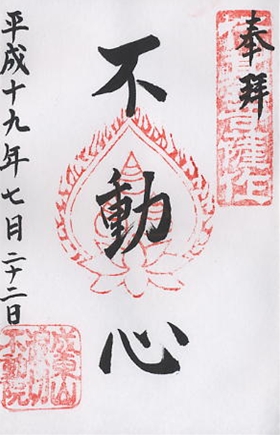 奉拝
不動心
平成十九年七月二十二日
不動院